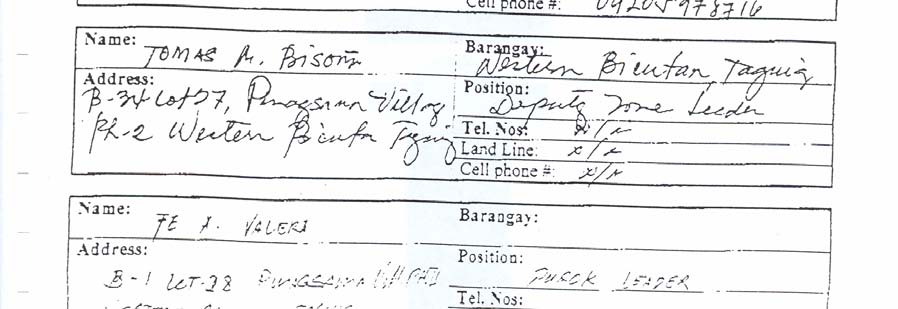 Cell phone #: 09205978716
Name: TOMAS A. Bisoña
Barangay: Western Bicutan Taguig
Address:
B-34 Lot 27, Pinagsama Village
Ph-2 Western Bicutan Taguig
Position: Deputy Zone Leader
Tel. Nos:
Land Line:
Cell phone #:
Name: FE A. VALERI
Barangay:
Address:
B-1 LOT-28 PINAGSAMA
Position: PUROK LEADER
Tel. Nos: